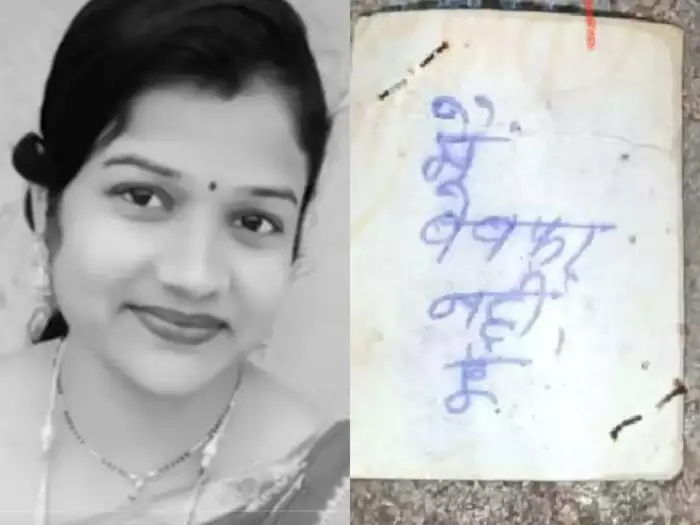 मैं
बेवफा
नही
हू